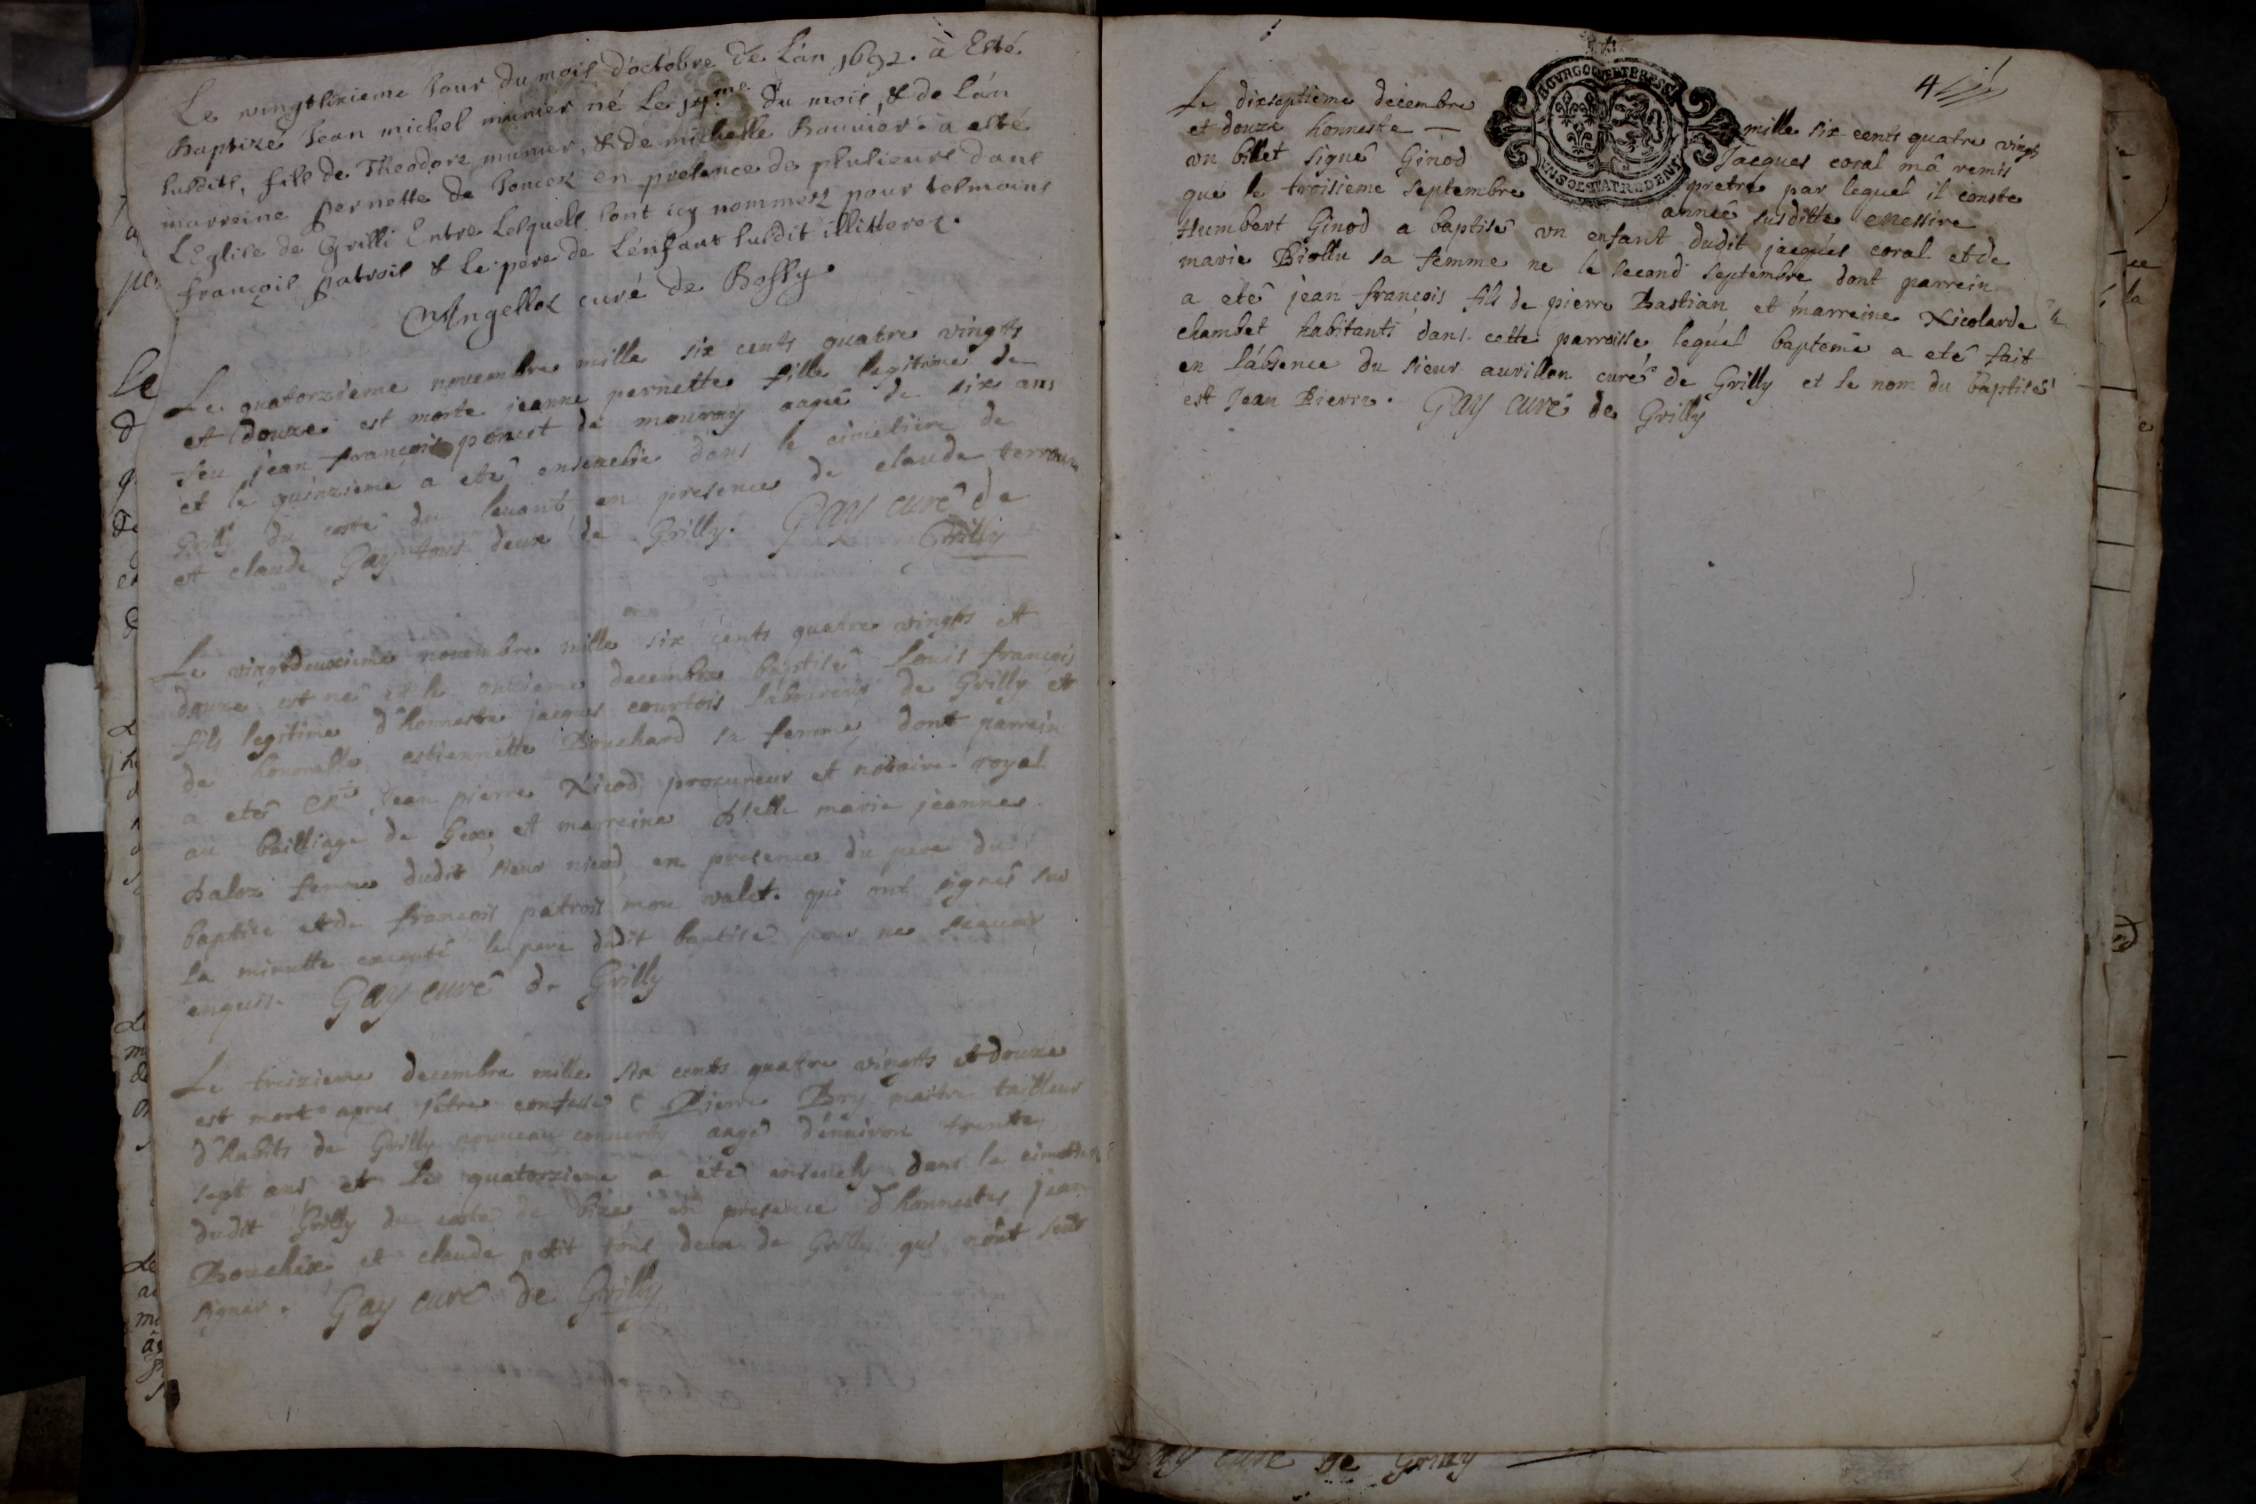 Le vingtsixieme Jour du mois d'octobre de L'an 1692. a Esté
Baptizé Jean michel munier né Le 14me du mois, & de L'an
susdits, fils de Theodore munier, & de michelle Bouvier. a esté
marreine pernette de Joncez en presence de plusieurs dans
L'Eglise de Grilli Entre Lesquels sont icy nommez pour tesmoins
françois patrois & Le père de L'enfant susdit illitterez.
Angelloz curé de Bossy.
Le quatorzieme novembre mille six cents quatre vingts
et douze est morte jeanne pernette fille legitime de
feu jean françois poncet de mourex aagée de six ans
et le quinzieme a eté ensevelie dans le cimetiere de
Grilly du costé du levant en presence de claude terroux
et claude Gay tous deux de Grilly. Gay curé de
Grilly
Le vingtdeuxieme novembre mille six cents quatre vingts et
douze est né et le onzieme decembre baptisé Louis françois
fils legitime d'honneste jacques courtois laboureur de Grilly et
de honorable estiennette Bouchard sa femme dont parrein
a eté Jean pierre Nicod procureur et notaire royal
au bailliage de Gex et marreine Dlle marie jeanne
daloz femme dudit sieur nicod en presence du pere du
baptisé et de françois patrois mon valet. qui ont signé sur
la minutte excepté le pere dudit baptisé pour ne sçavoir
enquis. Gay curé de Grilly
Le treizieme decembre mille six cents quatre vingts et douze
est mort apres s'etre confessé Pierre Bry maitre tailleur
d'habits de Grilly nouveau converty aagé d'environ trente
sept ans et Le quatorzieme a eté ensevely dans le cimetiere
dudit Grilly du costé de bize en presence d'honnestes jean
Bouchex et claude petit tous deux de Grilly qui n'ont sceu
signer. Gay curé de Grilly
4
BOVRGOGNE ET BRESSE
VN SOL QVATRE DEN
Le dixseptieme decembre mille six cents quatre vingts
et douze honneste — Jacques coral m'a remis
un billet signé Ginod pretre par lequel il conste
que le troisieme septembre année susditte messire
Humbert Ginod a baptisé un enfant dudit jacques coral et de
marie Biollu sa femme ne le second septembre dont parrein
a eté jean françois fils de pierre Bastian et marreine Nicolarde
chambet habitants dans cette parroisse lequel bapteme a eté fait
en l'absence du sieur auvillon curé de Grilly et le nom du baptisé
est Jean Pierre. Gay curé de Grilly
Gay curé de Grilly